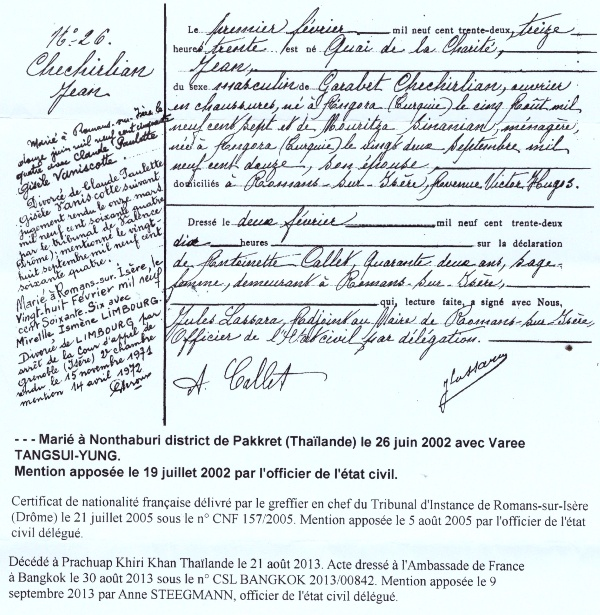 N° 26.
Chechirlian
Jean
Marié à Romans sur Isère le
douze juin mil neuf cent cinquante
quatre avec Claude Paulette
Gisèle Vaniscotte.
Divorcé de Claude Paulette
Gisèle Vaniscotte suivant
jugement rendu le onze mars
mil neuf cent soixante quatre
par le tribunal de Valence
(Drôme); mentionné le vingt-
huit septembre mil neuf cent
soixante quatre.
Marié à Romans-sur-Isère, le
Vingt-huit Février mil neuf
cent Soixante-Six avec
Mireille, Ismène LIMBOURG.
Divorcé de LIMBOURG par
arrêt de la Cour d'appel de
Grenoble (Isère) 2e chambre
rendu le 15 novembre 1971
mention 14 avril 1972
Le premier février mil neuf cent trente-deux, treize
heures trente est né Quai de la Charité,
Jean,
du sexe masculin de Garabet Chechirlian, ouvrier
en chaussures, né à Angora (Turquie) le cinq Août mil
neuf cent sept et de Mouritza Sinanian, ménagère,
née à Angora (Turquie) le vingt deux septembre mil
neuf cent douze, son épouse,
domiciliés à Romans-sur-Isère, Avenue Victor Hugo.
Dressé le deux février mil neuf cent trente-deux
dix heures sur la déclaration
de Antoinette Callet, Quarante deux ans, sage-
femme, demeurant à Romans-sur-Isère,
qui, lecture faite, a signé avec Nous,
Jules Lassara, Adjoint au Maire de Romans-sur-Isère,
Officier de l'Etat civil par délégation.
A. Callet
JLassara
- - - Marié à Nonthaburi district de Pakkret (Thaïlande) le 26 juin 2002 avec Varee
TANGSUI-YUNG.
Mention apposée le 19 juillet 2002 par l'officier de l'état civil.
Certificat de nationalité française délivré par le greffier en chef du Tribunal d'Instance de Romans-sur-Isère
(Drôme) le 21 juillet 2005 sous le n° CNF 157/2005. Mention apposée le 5 août 2005 par l'officier de l'état
civil délégué.
Décédé à Prachuap Khiri Khan Thaïlande le 21 août 2013. Acte dressé à l'Ambassade de France
à Bangkok le 30 août 2013 sous le n° CSL BANGKOK 2013/00842. Mention apposée le 9
septembre 2013 par Anne STEEGMANN, officier de l'état civil délégué.